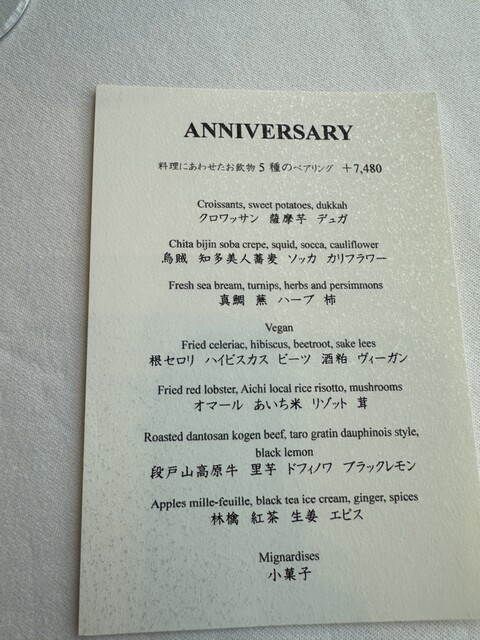 ANNIVERSARY
料理にあわせたお飲物 5 種のペアリング +7,480
Croissants, sweet potatoes, dukkah
クロワッサン 薩摩芋 デュガ
Chita bijin soba crepe, squid, socca, cauliflower
烏賊 知多美人蕎麦 ソッカ カリフラワー
Fresh sea bream, turnips, herbs and persimmons
真鯛 蕪 ハーブ 柿
Vegan
Fried celeriac, hibiscus, beetroot, sake lees
根セロリ ハイビスカス ビーツ 酒粕 ヴィーガン
Fried red lobster, Aichi local rice risotto, mushrooms
オマール あいち米 リゾット 茸
Roasted dantosan kogen beef, taro gratin dauphinois style,
black lemon
段戸山高原牛 里芋 ドフィノワ ブラックレモン
Apples mille-feuille, black tea ice cream, ginger, spices
林檎 紅茶 生姜 エピス
Mignardises
小菓子